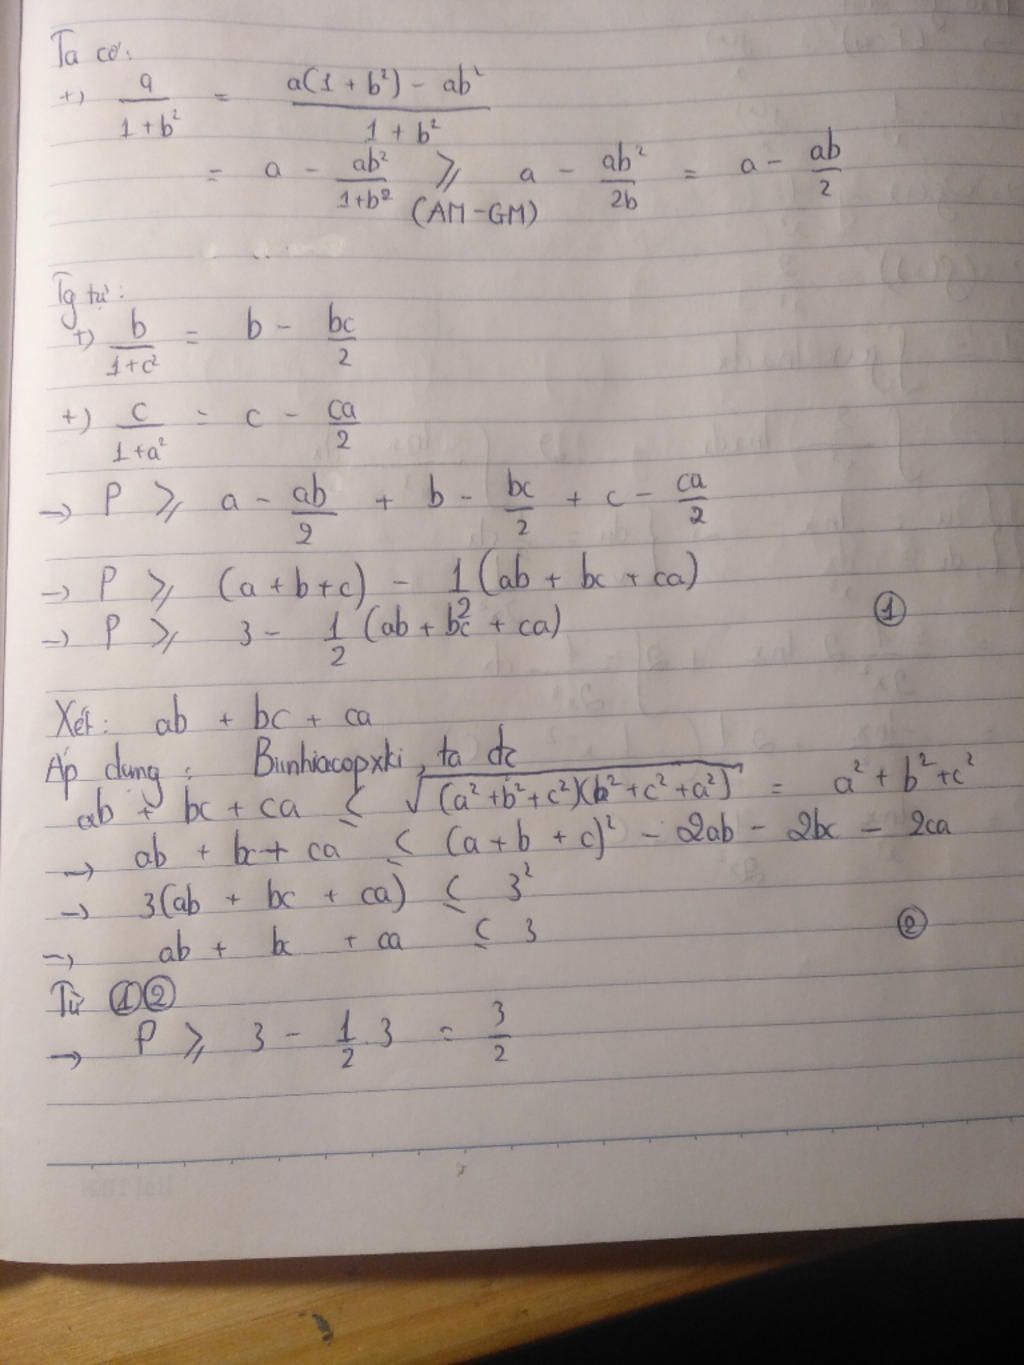 Ta có:
+) a/(1+b²) = (a(1+b²) - ab²)/(1+b²)
= a - ab²/(1+b²) ⩾ a - ab²/2b = a - ab/2
(AM-GM)
Tg tự:
+) b/(1+c²) = b - bc/2
+) c/(1+a²) = c - ca/2
→ P ⩾ a - ab/2 + b - bc/2 + c - ca/2
→ P ⩾ (a+b+c) - 1/2 (ab + bc + ca)
→ P ⩾ 3 - 1/2 (ab + bc + ca) ①
Xét: ab + bc + ca
Áp dụng: Bunhiacopxki, ta đc
ab + bc + ca ≤ √((a²+b²+c²)(b²+c²+a²)) = a²+b²+c²
→ ab + bc + ca ≤ (a+b+c)² - 2ab - 2bc - 2ca
→ 3(ab + bc + ca) ≤ 3²
→ ab + bc + ca ≤ 3 ②
Từ ①②
→ P ⩾ 3 - 1/2 . 3 = 3/2